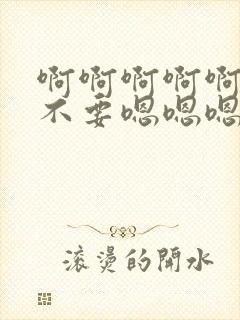 啊啊啊啊啊
不要嗯嗯嗯
滚烫的開水